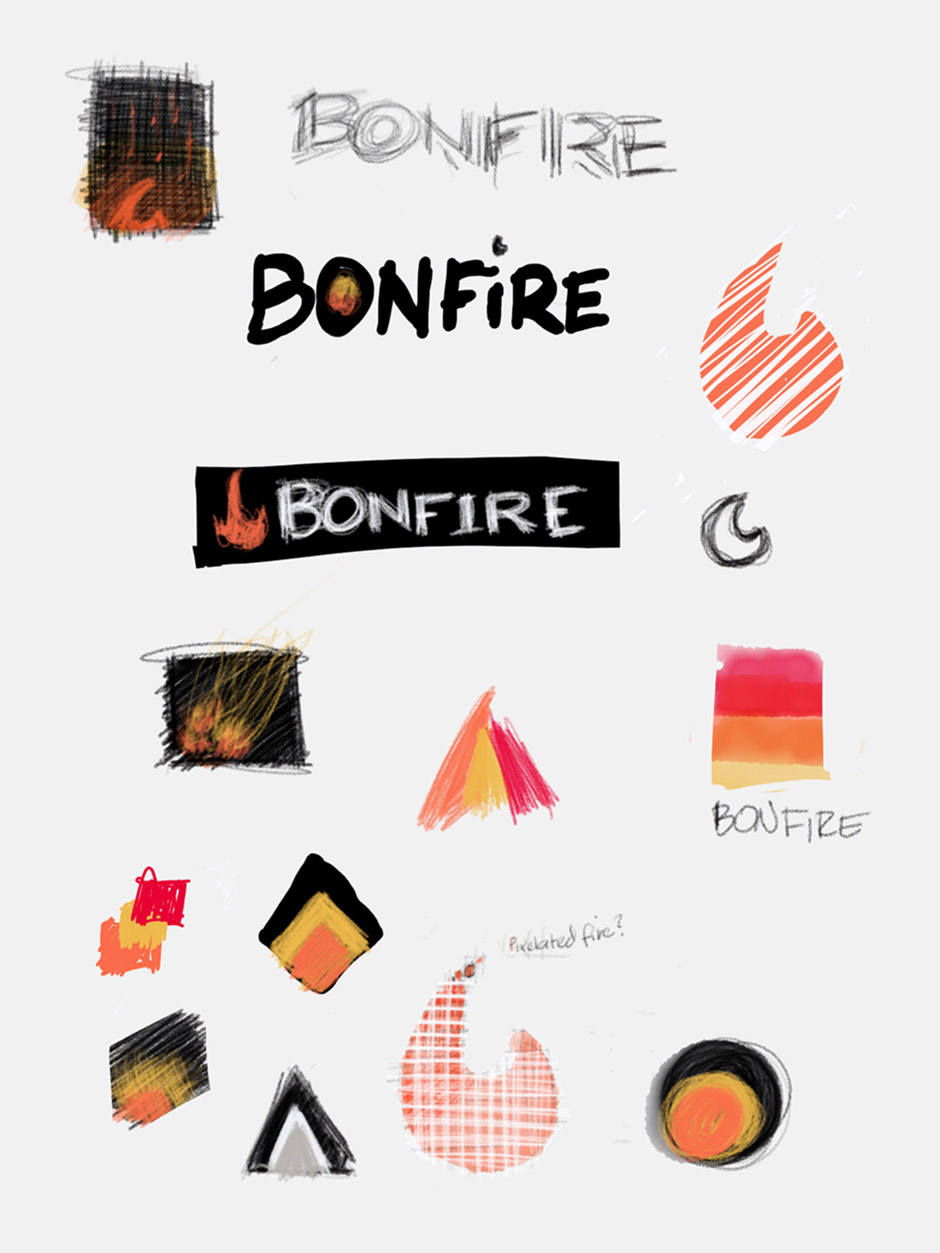 BONFIRE
BONFiRE
BONFIRE
BONFiRE
Pixelated fire?